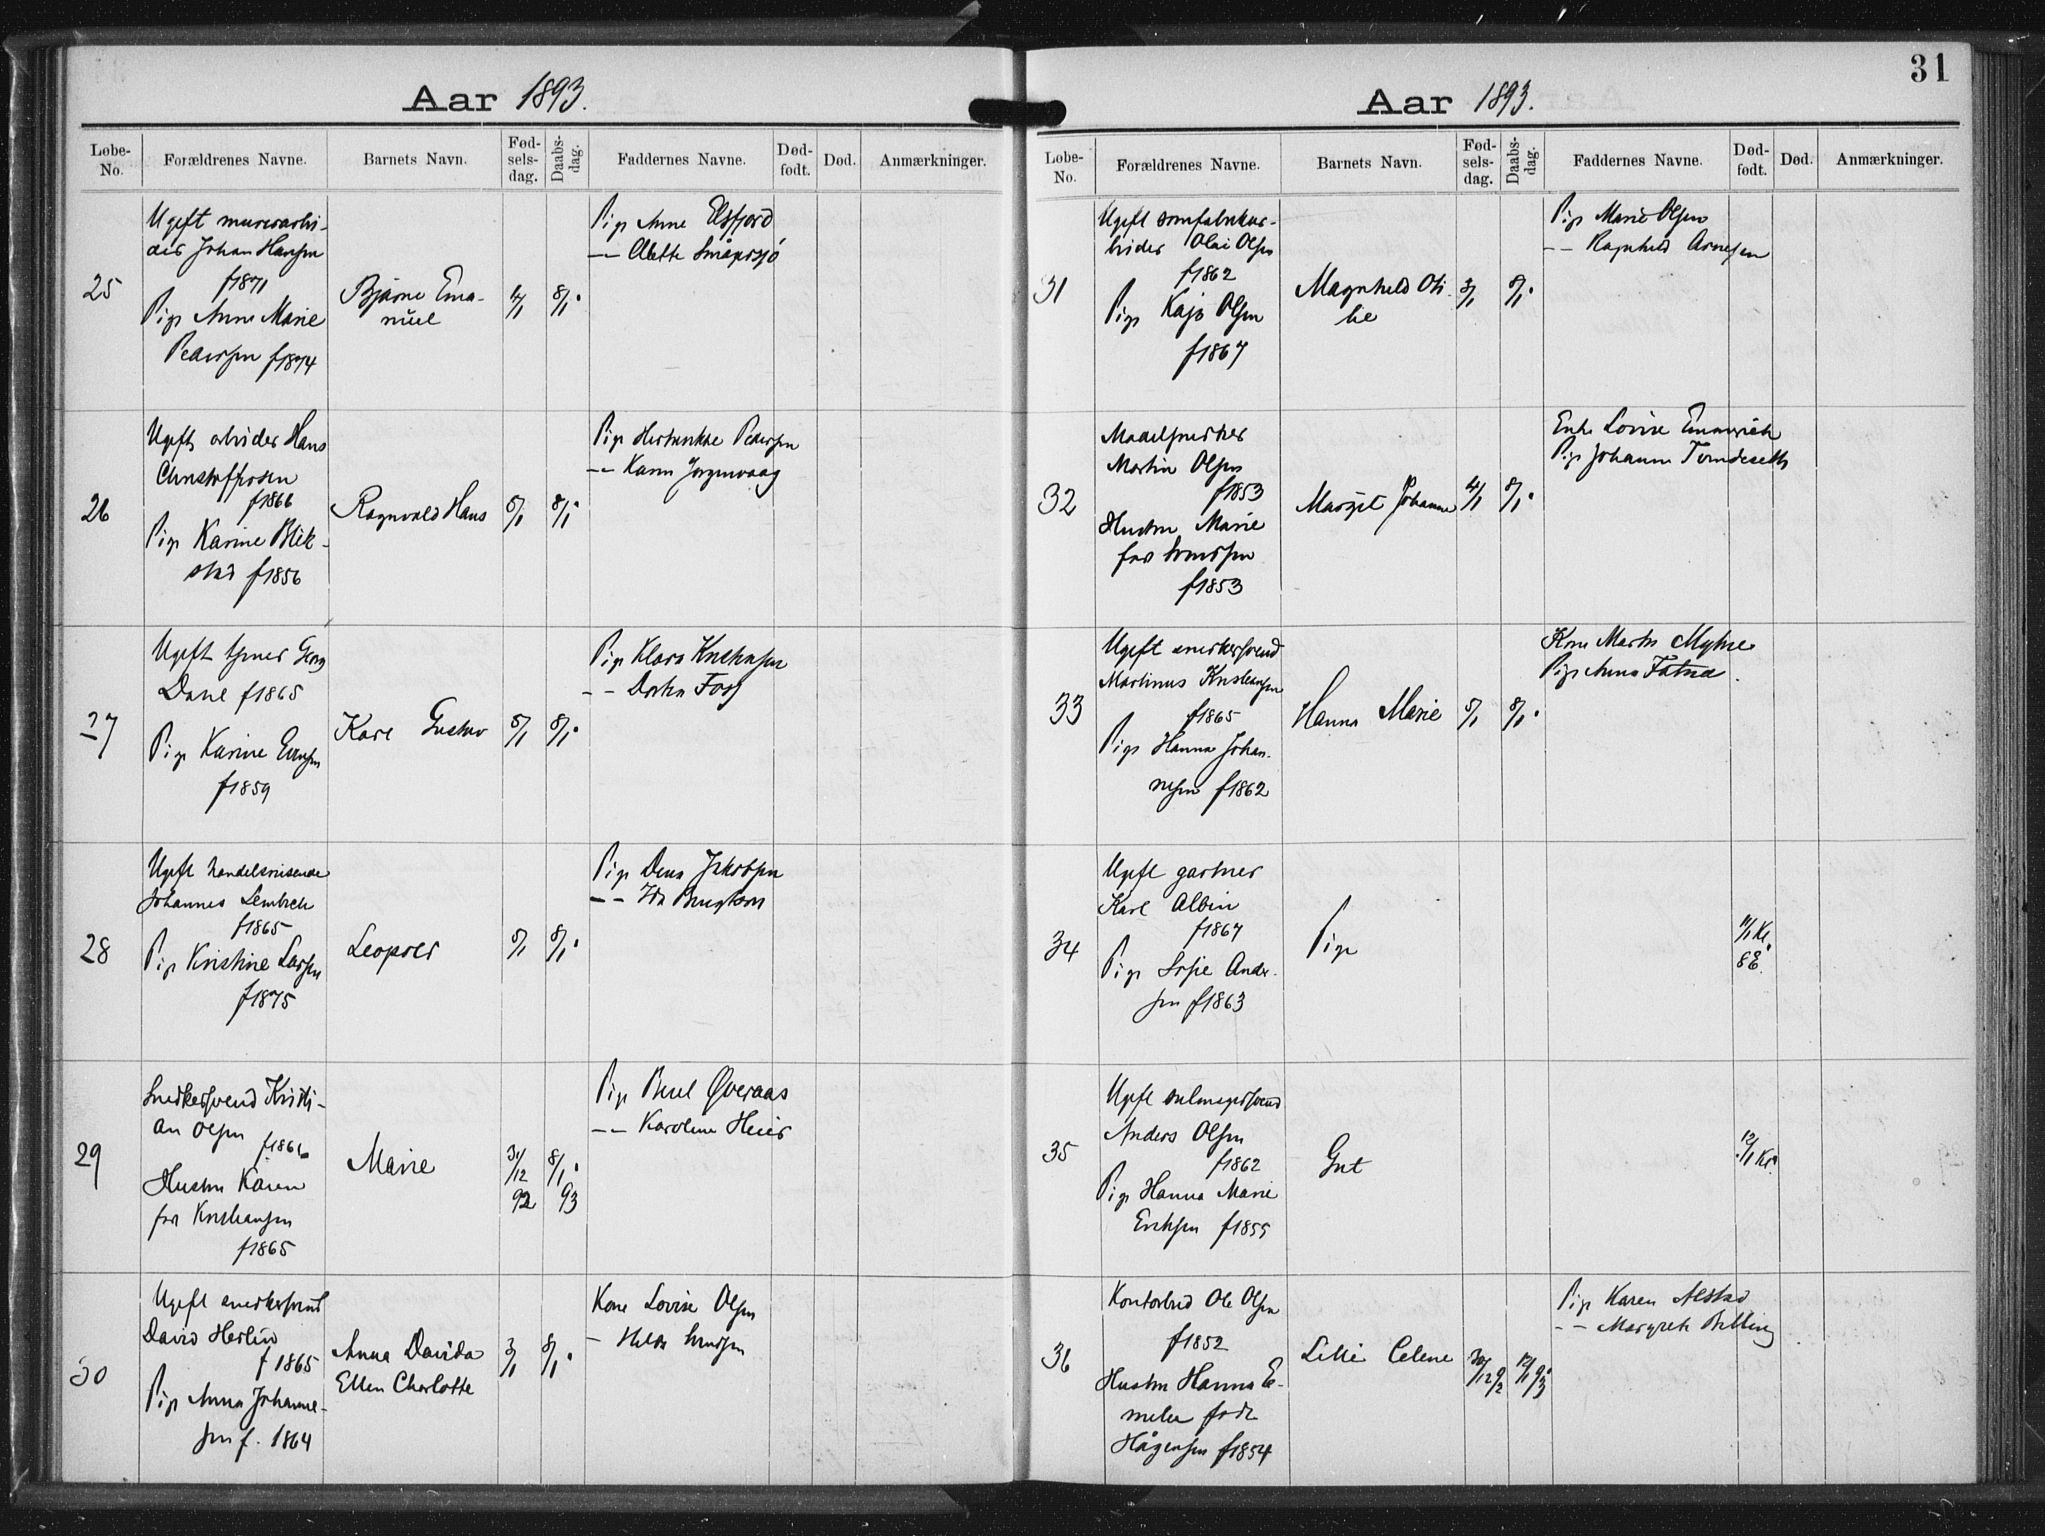 Aar 1893.
Løbe-No.
Forældrenes Navne.
Barnets Navn.
Fød-sels-dag.
Daabs-dag.
Faddernes Navne.
Død-født.
Død.
Anmærkninger.
25
Ugift murerarbi-
der Johan Hansen
f 1871
Pige Anne Marie
Pedersen f 1874
Bjarne Ema-
nuel
4/1
8/1.
Pige Anne Elsfjord
— Alette
26
Ugift arbider Hans
Christoffersen
f 1866
Pige Karine Blik-
stad f 1856
Ragnvald Hans
5/1
8/1.
Pige Pedersen
— Karen Jørgenvaag
27
Ugift tjener Georg
Dane f 1865
Pige Karine Evensen
f 1859
Karl Gustav
5/1
8/1.
Pige Klara Knehnsen
— Dortea Foss
28
Ugift handelsreisende
Johannes Lembech
f 1865
Pige Kristine Larsen
f 1875
Leopold
5/1
8/1.
Pige Dina Jakobsen
— Ida Bengtson
29
Snedkersvend Kristi-
an Olsen f 1866
Hustru Karen
før Kristiansen
f 1865
Marie
31/12 92
8/1. 93
Pige Øveraas
— Karoline Heier
30
Ugift snedkersvend
David Herlin
f 1865
Pige Anna Johanne-
sen f. 1864
Anna Davida
Ellen Charlotte
3/1
8/1.
Kone Lovise Olsen
— Hilda
31
Aar 1893.
Løbe-No.
Forældrenes Navne.
Barnets Navn.
Fød-sels-dag.
Daabs-dag.
Faddernes Navne.
Død-født.
Død.
Anmærkninger.
31
Ugift sømfabrikar-
bider Olai Olsen
f 1862
Pige Kaja Olsen
f 1867
Magnhild Oti-
lie
3/1
8/1.
Pige Marie Olsen
— Ragnhild Arnesen
32
Modelsnedker
Martin Olsen
f 1853
Hustru Marie
før
f 1853
Margit Johanne
4/1
8/1.
Enke Lovise Emmerich
Pige Johanne Tømdeseth
33
Ugift snedkersvend
Martinus Kristiansen
f 1865
Pige Hanna Johan-
nesen f 1862
Hanna Marie
5/1
8/1.
Kone Martha Myhre
Pige Anna Fatna.
34
Ugift gartner
Karl Albin
f 1867
Pige Sofie Ander-
sen f 1863
Pige
11/1 Kl.
8 E.
35
Ugift salmagersvend
Anders Olsen
f 1862
Pige Hanna Marie
Eriksen f 1855
Gut
12/1 Kl.
36
Kontorbud Ole Olsen
f 1852
Hustru Hanna E-
melie født
Hågensen f 1854
Lilli Celene
30/12 92
12/1 93
Pige Karen Alstad
— Margreth Billing